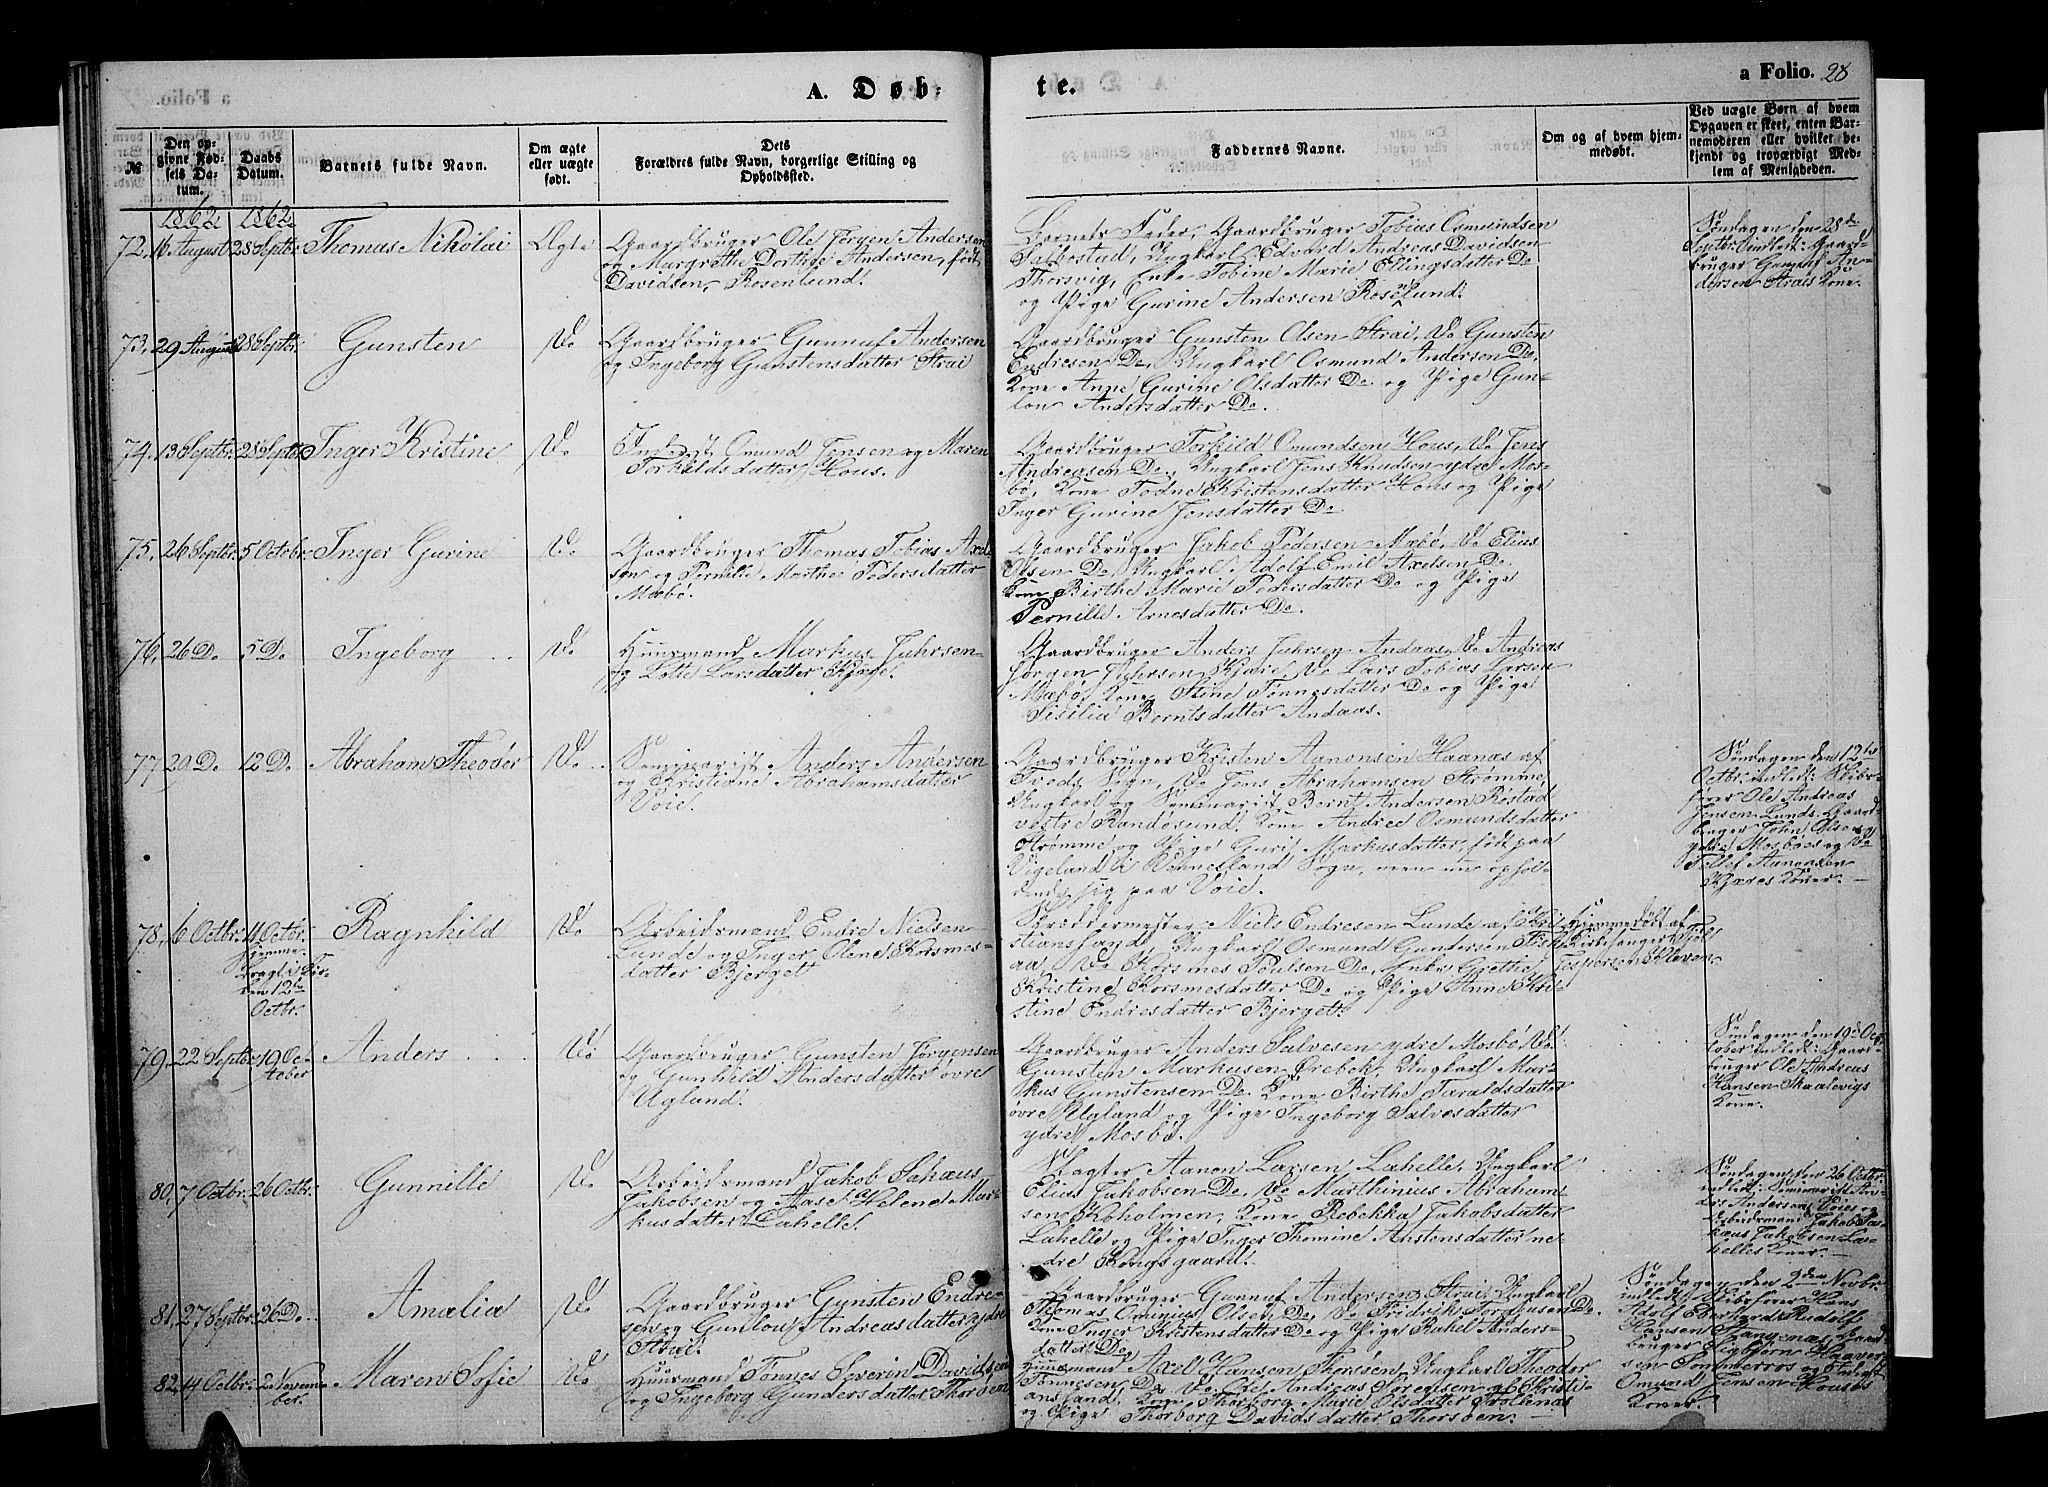 A. Døb=
te.
a Folio. 28
№
Den op-
givne Fød-
sels Da-
tum.
Daabs
Datum.
Barnets fulde Navn.
Om ægte
eller uægte
født.
Dets
Forældres fulde Navn, borgerlige Stilling og
Opholdssted.
Faddernes Navne.
Om og af hvem hjem-
medøbt.
Ved uægte Børn af hvem
Opgaven er skeet, enten Bar-
nemoderen eller hvilket be-
kjendt og troværdigt Med-
lem af Menigheden.
1862 1862
72. 16 August 28 Septbr. Thomas Nikolai Ægte
Gaardbruger Ole Jørgen Andersen
og Margrethe Dorthea Andersen, født
Davidsen, Rosenlund.
Barnets Fader, Gaardbruger Tobias Osmundsen
Salbostad, Ungkarl Edvard Andreas Davidsen
Thorsvig, Enke Tobine Marie Ellingsdatter Do
og Pige Gurine Andersen Rosenlund.
Søndagen den 28de
Septbr. indledt: Gaard-
bruger Gunuf An-
dersen Strais Kone.
73. 29 August 28 Septbr. Gunsten Do
Gaardbruger Gunnuf Andersen
og Ingeborg Gunstensdatter Strai
Gaardbruger Gunsten Olsen Strai, Do Gunsten
Endresen Do, Ungkarl Osmund Andersen Do,
Kone Anne Gurine Olsdatter Do og Pige Gun-
lou Andersdatter Do.
74. 13 Septbr. 28 Septbr. Inger Kristine Do
Inderst Omund Jensen og Maren
Torkildsdatter Hous.
Gaardbruger Torkild Omundsen Hous, Do Jens
Andreasen Do, Ungkarl Jens Knudsen ydre Mos-
bø, Kone Todne Kristensdatter Hous og Pige
Inger Gurine Jensdatter Do
75. 26 Septbr. 5 Octobr. Inger Gurine Do
Gaardbruger Thomas Tobias Axel-
sen og Pernille Marthe Pedersdatter
Mæbø.
Gaardbruger Jakob Pedersen Mæbø, Do Elias
Olsen Do, Ungkarl Adolf Emil Axelsen Do
Kone Birthe Marie Pedersdatter Do og Pige
Pernille Arnesdatter Do.
76. 26 Do 5 Do Ingeborg Do
Huusmand Markus Juhrsen
og Lotte Larsdatter Kjære.
Gaardbruger Anders Juhrsen Andaas, Do Andreas
Jørgen Pedersen Kjære, Do Lars Tobias Larsen
Mæbø, Kone Stine Tønnesdatter Do og Pige
Sisilia Berntsdatter Andaas.
77. 29 Do 12 Do Abraham Theodor Do
Seminarist Anders Andersen
og Kristiane Abrahamsdatter
Voie.
Gaardbruger Kristen Aanonsen Haanæs af
Tveds Sogn, Do Jens Abrahamsen Strømme,
Ungkarl og Seminarist Bernt Andersen Røstad
vestre Randøsund, Kone Andrea Osmundsdatter
Strømme og Pige Guri Markusdatter, født paa
Vigeland i Vennesland Sogn, men nu ophol-
dende sig paa Voie.
Søndagen den 12te
Octbr. indledt: Skibs-
fører Ole Andreas
Jensen Lunds, Gaard-
bruger John Olsen
ydre Mosbøes og Do
Tellef Aanonsen
Kjæres Koner.
78. 6 Octbr. 11 Octbr.
hjemme
bragt i Kir-
ken 12te
Octbr.
Ragnhild Do
Arbeidsmand Endre Nielsen
Lunde og Inger Olene Korsmes-
datter Bjerget
Skræddermester Niels Endresen Lunde af Kri-
stianssand, Ungkarl Osmund Gundersen Fisk-
aa, Do Korsmes Poulsen Do, Enke Grethe
Kristine Korsmesdatter Do og Pige Anne Kri-
stine Endresdatter Bjerget.
Hjemmedøbt af
Kirkesanger Kjøl
Jespersen Kleven
79. 22 Septbr. 19 Oc-
tober
Anders Do
Gaardbruger Gunsten Jørgensen
og Gunhild Andersdatter øvre
Ugland.
Gaardbruger Anders Salvesen ydre Mosbø, Do
Gunsten Markusen Ørebek, Ungkarl Mar-
kus Gunstensen Do, Kone Birthe Taraldsdatter
øvre Ugland og Pige Ingeborg Salvesdatter
ydre Mosbø.
Søndagen den 19de Oc-
tober indledt: Gaard-
bruger Ole Andreas
Hansen Skaalevigs
Kone.
80. 7 Octbr. 26 Octbr. Gunnille Do
Arbeidsmand Jakob Sakæus
Jakobsen og Aase Helene Mar-
kusdatter Lahelle.
Slagter Aanon Larsen Lahelle, Ungkarl
Elias Jakobsen Do, Do Marthinius Abraham-
sen Kobholmen, Kone Rebekka Jakobsdatter
Lahelle og Pige Inger Thomine Anstensdatter ne-
dre Kongsgaard.
Søndagen den 26 Octbr.
indledt: Seminarist An-
drs. Andersen Voies og
Arbeidsmand Jakob Sa-
kæus Jakobsen La-
helles Koner.
81. 27 Septbr. 26 Do Amalia Do
Gaardbruger Gunsten Endre-
sen og Gunlou Andreasdatter ydre
Strai.
Gaardbruger Gunnuf Andersen Strai, Ungkarl
Thomas Ominius Olsen Do, Do Fridrik Torgiusen Do,
Kone Inger Kristensdatter Do og Pige Rakel Anders-
datter Do
Søndagen den 2den Novbr.
indledt: Skibsfører Hans
Adolf Eberhard Rudolf
Hansen Tangenæs, Gaard-
bruger Sigbjørn Haaver-
sen Sommerros og Inderst
Omund Jensen Housos
Koner.
82. 14 Octbr. 2 Novem-
ber.
Maren Sofie Do
Huusmand Tønnes Severin Davidsen
og Ingeborg Gundersdatter Thorsøen
Huusmand Axel Hansen Thorsøen, Ungkarl Theodor
Tønnesen Do, Do Ole Andreas Jørgensen af Kristi-
anssand, Kone Thorborg Marie Olsdatter Trollenæs
og Pige Thorborg Davidsdatter Thorsøen.